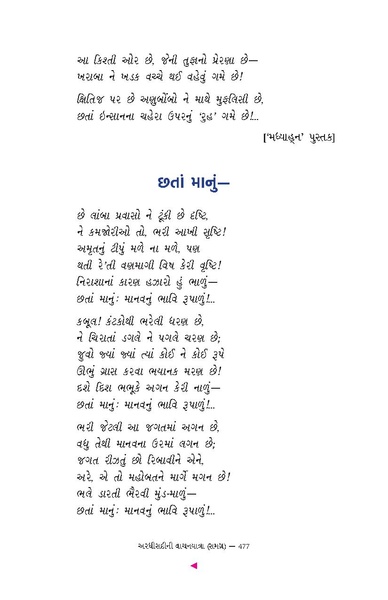 આ કિશ્તી ઓર છે, જેની તુફાનો પ્રેરણા છે—
ખરાબા ને ખડક વચ્ચે થઈ વહેવું ગમે છે!
ક્ષિતિજ પર છે અણુબોંબો ને માથે મુફલિસી છે,
છતાં ઇન્સાનના ચહેરા ઉપરનું ‘રુહ’ ગમે છે!…
[‘મધ્યાહ્ન’ પુસ્તક]
છતાં માનું—
છે લાંબા પ્રવાસો ને ટૂંકી છે દૃષ્ટિ,
ને કમજોરીઓ તો, ભરી આખી સૃષ્ટિ!
અમૃતનું ટીપું મળે ના મળે, પણ
થતી રે’તી વણમાગી વિષ કેરી વૃષ્ટિ!
નિરાશાનાં કારણ હઝારો હું ભાળું—
છતાં માનું: માનવનું ભાવિ રૂપાળું!…
કબૂલ! કંટકોથી ભરેલી ધરણ છે,
ને ચિરાતાં ડગલે ને પગલે ચરણ છે;
જુવો જ્યાં જ્યાં ત્યાં કોઈ ને કોઈ રૂપે
ઊભું ગ્રાસ કરવા ભયાનક મરણ છે!
દશે દિશ ભભૂકે અગન કેરી નાળું—
છતાં માનું: માનવનું ભાવિ રૂપાળું!…
ભરી જેટલી આ જગતમાં અગન છે,
વધુ તેથી માનવના ઉરમાં લગન છે;
જગત રીઝતું છો રિબાવીને એને,
અરે, એ તો મહોબતને માર્ગે મગન છે!
ભલે ડારતી ભૈરવી મુંડ-માળું—
છતાં માનું: માનવનું ભાવિ રૂપાળું!…
અરધીસદીની વાચનયાત્રા (સમગ્ર) — 477